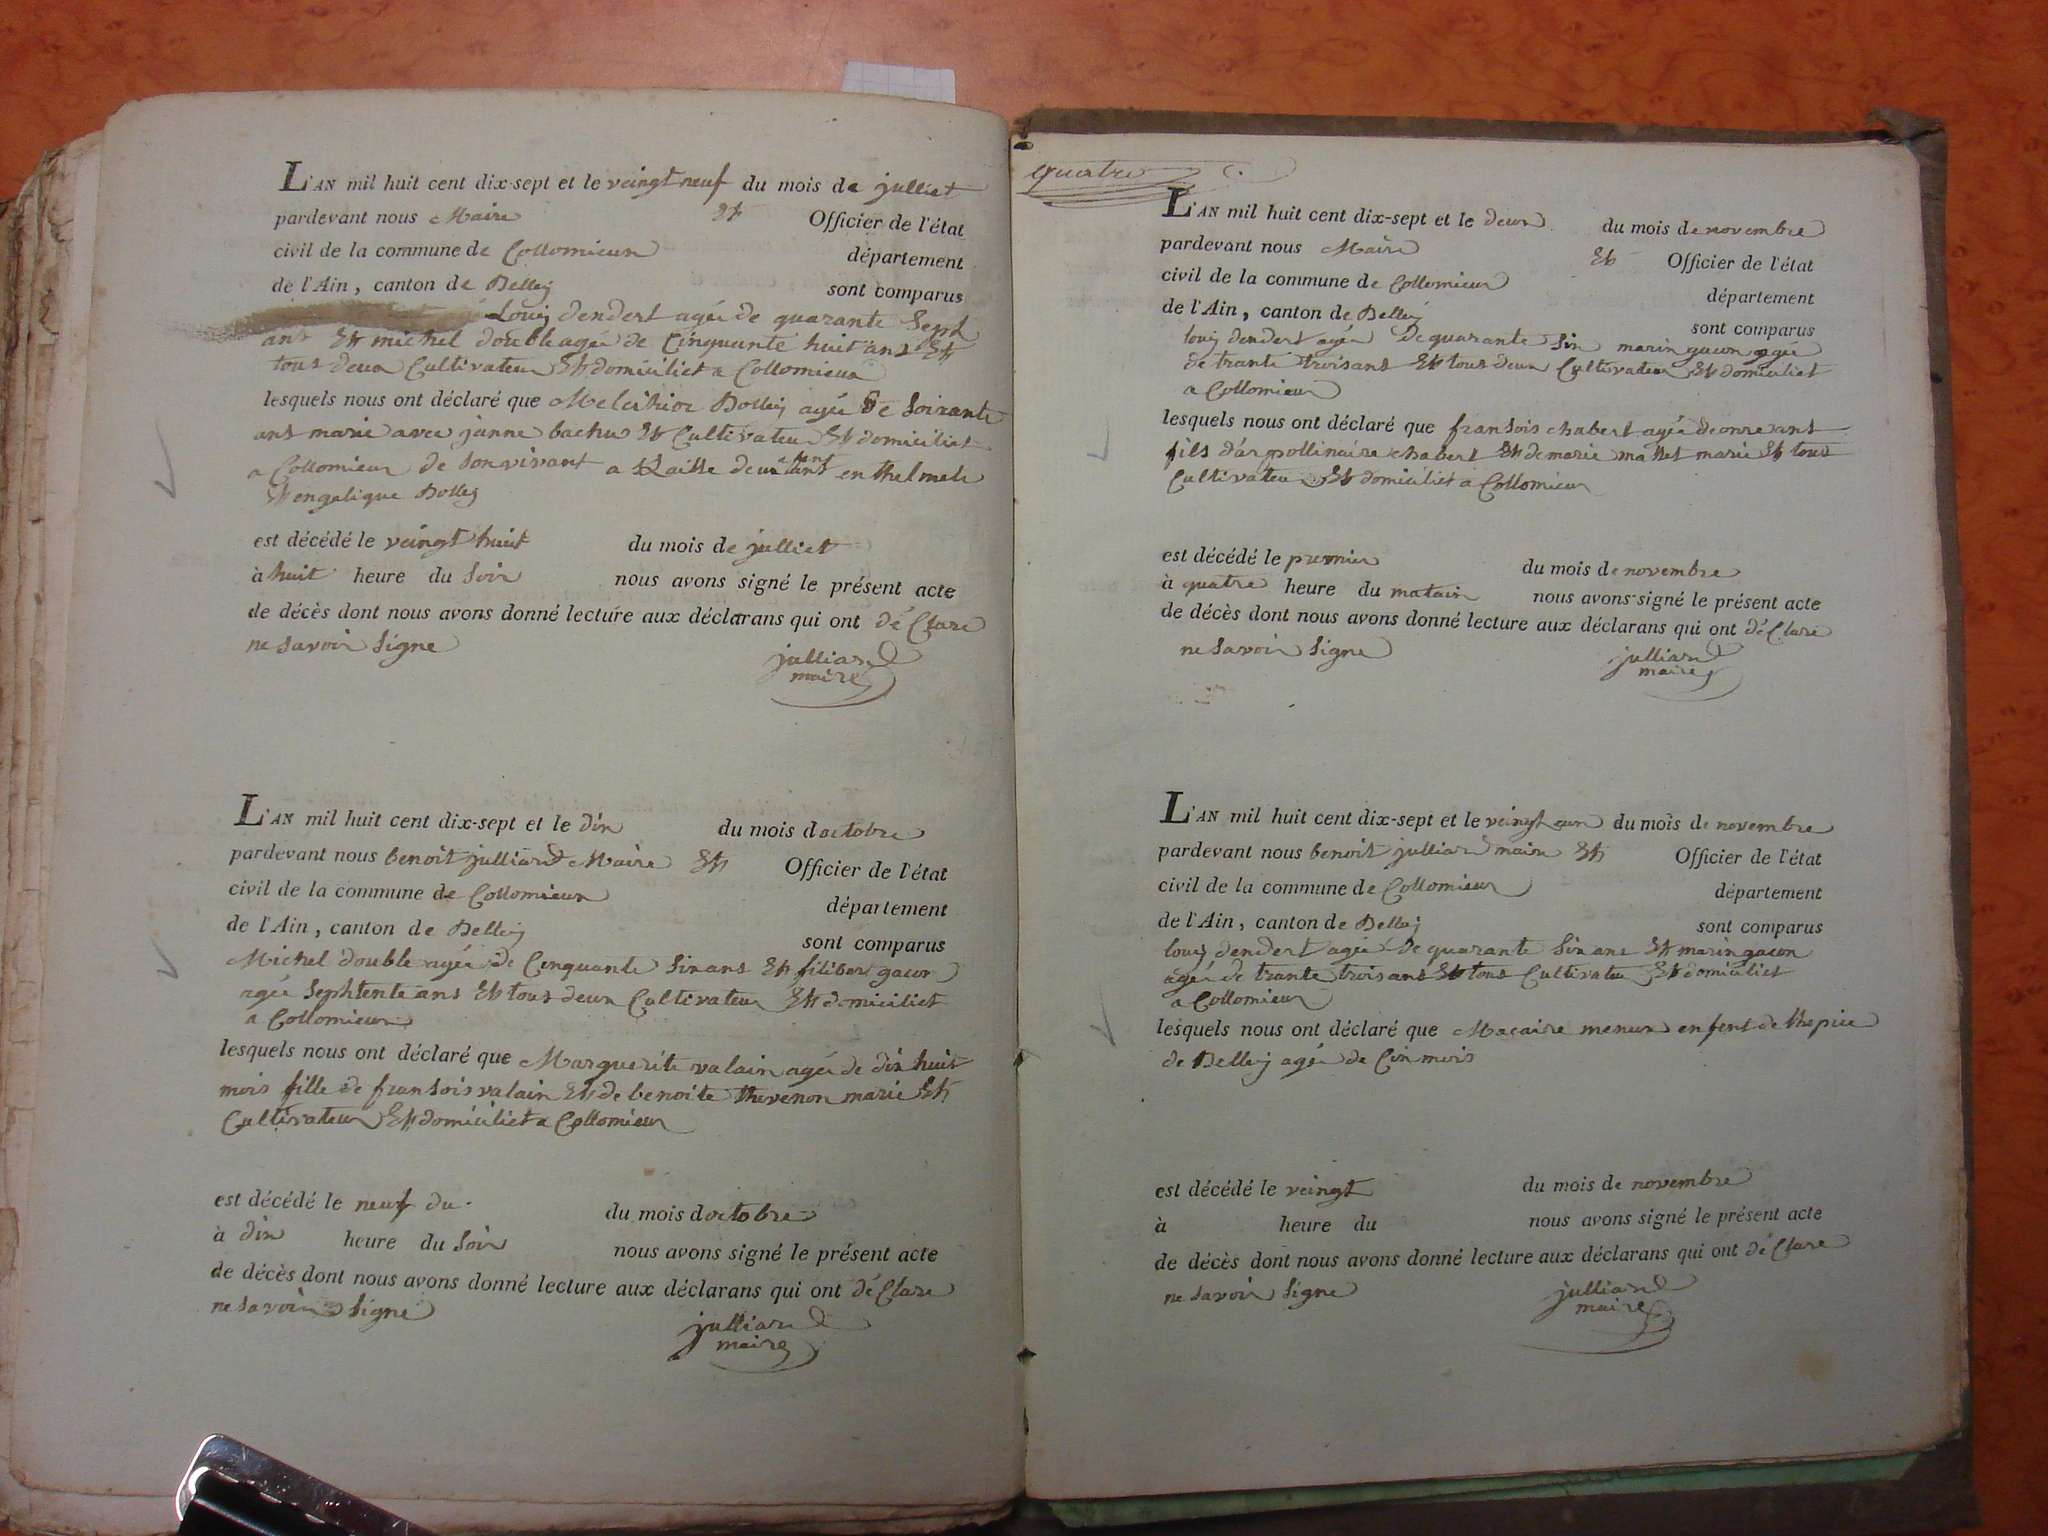 L'AN mil huit cent dix-sept et le veingt neuf du mois de julliet
pardevant nous Maire Et Officier de l'état
civil de la commune de Collomieux département
de l'Ain, canton de Belley sont comparus
Louis dendert agée de quarante Sept
ans Et michel double agée de Cinquante huit ans Et
tous deux Cultivateur Et domiciliet a Collomieux
lesquels nous ont déclaré que Melchior Bolley agée de Soixante
ans marie avec janne bachu Et Cultivateu Et domiciliet
a Collomieux de Son vivant a Laisse deux enfant en thelmele
Et engelique Bolley
est décédé le veingt huit du mois de julliet
à huit heure du Soir nous avons signé le présent acte
de décès dont nous avons donné lecture aux déclarans qui ont dé Clare
ne Savoir Signe
julliard
maire
L'AN mil huit cent dix-sept et le dix du mois d octobre
pardevant nous benoit julliard Maire Et Officier de l'état
civil de la commune de Collomieux département
de l'Ain, canton de Belley sont comparus
Michel double agée de Cinquante Six ans Et filibert gacon
agée Sephtente ans Et tous deux Cultivateur Et domiciliet
a Collomieux
lesquels nous ont déclaré que Marguerite valain agée de dix huit
mois fille de fransois valain Et de benoite thevenon marie Et
Cultivateur Et domiciliet a Collomieux
est décédé le neuf du du mois d octobre
à dix heure du Soir nous avons signé le présent acte
de décès dont nous avons donné lecture aux déclarans qui ont dé Clare
ne Savoir Signe
julliard
maire
quatre
L'AN mil huit cent dix-sept et le deux du mois de novembre
pardevant nous Maire Et Officier de l'état
civil de la commune de Collomieux département
de l'Ain, canton de Belley sont comparus
louis dendert agée De quarante Six marin gacon agée
de trante trois ans Et tous deux Cultivateu Et domiciliet
a Collomieux
lesquels nous ont déclaré que fransois chabert agée de onze ans
fils d'arpollinaire chabert Et de marie mallet marie Et tous
Cultivateu Et domiciliet a Collomieux
est décédé le premier du mois de novembre
à quatre heure du matain nous avons signé le présent acte
de décès dont nous avons donné lecture aux déclarans qui ont dé Clare
ne Savoir Signe
julliard
maire
L'AN mil huit cent dix-sept et le veingt eun du mois de novembre
pardevant nous benoit julliard maire Et Officier de l'état
civil de la commune de Collomieux département
de l'Ain, canton de Belley sont comparus
louis dendert agée de quarante Six ans Et marin gacon
agée de trante trois ans Et tous Cultivateu Et domiciliet
a Collomieux
lesquels nous ont déclaré que Macaire menux enfent de thopice
de Belley agée de Cin mois
est décédé le veingt du mois de novembre
à heure du nous avons signé le présent acte
de décès dont nous avons donné lecture aux déclarans qui ont dé Clare
ne Savoir Signe
julliard
maire